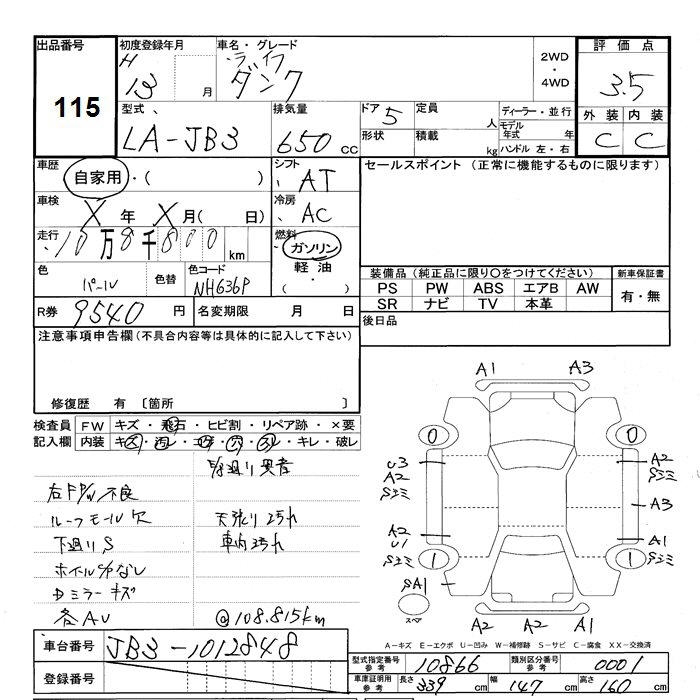 出品番号
115
初度登録年月
H
13 月
車名・グレード
ライフ
ダンク
2WD
・
4WD
評価点
3.5
外装 内装
C C
型式
LA-JB3
排気量
650 CC
ドア 5
形状
定員 人
積載 kg
ディーラー・並行
モデル年式 年
ハンドル 左・右
車歴
自家用・( )
シフト
AT
セールスポイント (正常に機能するものに限ります)
車検
X 年 X 月( 日)
冷房
AC
走行
10万8千800km
燃料
ガソリン
軽油
色
パール
色替
色コード
NH636P
装備品 (純正品に限り○をつけてください)
新車保証書
PS PW ABS エアB AW
SR ナビ TV 本革
有・無
R券 9540 円
名変期限 月 日
後日品
注意事項申告欄 (不具合内容等は具体的に記入して下さい)
修復歴 有 〔箇所 〕
検査員
記入欄
FW キズ・飛石・ヒビ割・リペア跡・×要
内装 キズ・汚レ・コゲ・穴・スレ・キレ・破レ
右F P/W不良
ルーフモール欠
天張り汚れ
下廻りS
車内汚れ
Dミラーキズ
各AU
@108.815km
A1 A3
0 0
U3
A2
Sシミ
A2
Sシミ
A3
A2
U1
Sシミ
A1
Sシミ
1 1
SA1
スペア
A2 A2 A1
A-キズ E-エクボ U-凹み W-補修跡 S-サビ C-腐食 XX-交換済
車台番号 JB3-1012848
登録番号
型式指定番号 参考 10866
類別区分番号 参考 0001
車庫証明用 参考 長さ 339 cm 幅 147 cm 高さ 160 cm